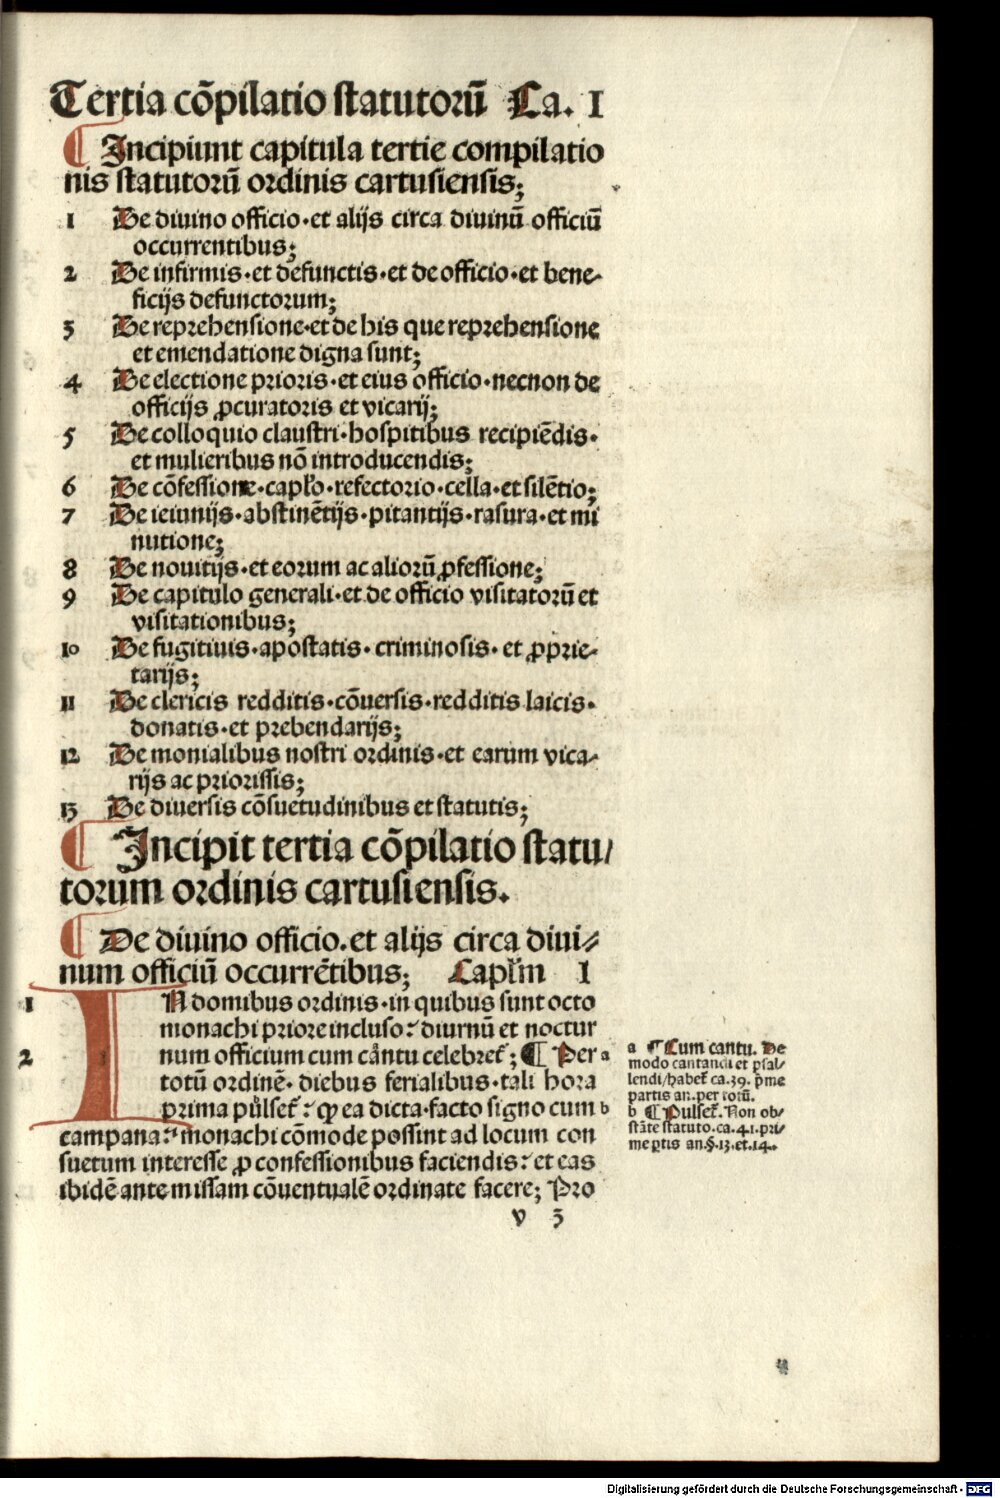 Tertia cōpilatio statutorū Ca. I
¶ Incipiunt capitula tertie compilatio
nis statutorū ordinis cartusiensis;
1 De diuino officio·et alijs circa diuinū officiū
occurrentibus;
2 De infirmis·et defunctis·et de officio·et bene-
ficijs defunctorum;
3 De reprehensione·et de his que reprehensione
et emendatione digna sunt;
4 De electione prioris·et eius officio·necnon de
officijs ꝓcuratoris et vicarij;
5 De colloquio claustri·hospitibus recipiēdis·
et mulieribus nō introducendis;
6 De cōfessione·caplo·refectorio·cella·et silētio;
7 De ieiunijs·abstinētijs·pitantijs·rasura·et mi
nutione;
8 De nouitijs·et eorum ac aliorū ꝓfessione;
9 De capitulo generali·et de officio visitatorū et
visitationibus;
10 De fugitiuis·apostatis·criminosis·et ꝓprie-
tarijs;
11 De clericis redditis·cōuersis·redditis laicis·
donatis·et prebendarijs;
12 De monialibus nostri ordinis·et earum vica-
rijs ac priorissis;
13 De diuersis cōsuetudinibus et statutis;
¶ Incipit tertia cōpilatio statu/
torum ordinis cartusiensis.
¶ De diuino officio.et alijs circa diui⸗
num officiū occurrētibus; Caplm I
1 IN domibus ordinis·in quibus sunt octo
monachi priore incluso: diurnū et noctur
2 num officium cum cantu celebret; ¶ Per a
totū ordinē· diebus ferialibus·tali hora
prima pulset: ꝙ ea dicta·facto signo cum b
campana: monachi cōmode possint ad locum con
suetum interesse ꝓ confessionibus faciendis: et eas
ibidē ante missam cōuentualē ordinate facere; Pro
v 3
a ¶ Cum cantu. De
modo cantandi et psal/
lendi/habet ca.39. pme
partis an.per totū.
b ¶ Pulset. Non ob/
stāte statuto.ca.41.pri/
me ꝑtis an.§.13.et.14.
Digitalisierung gefördert durch die Deutsche Forschungsgemeinschaft - DFG